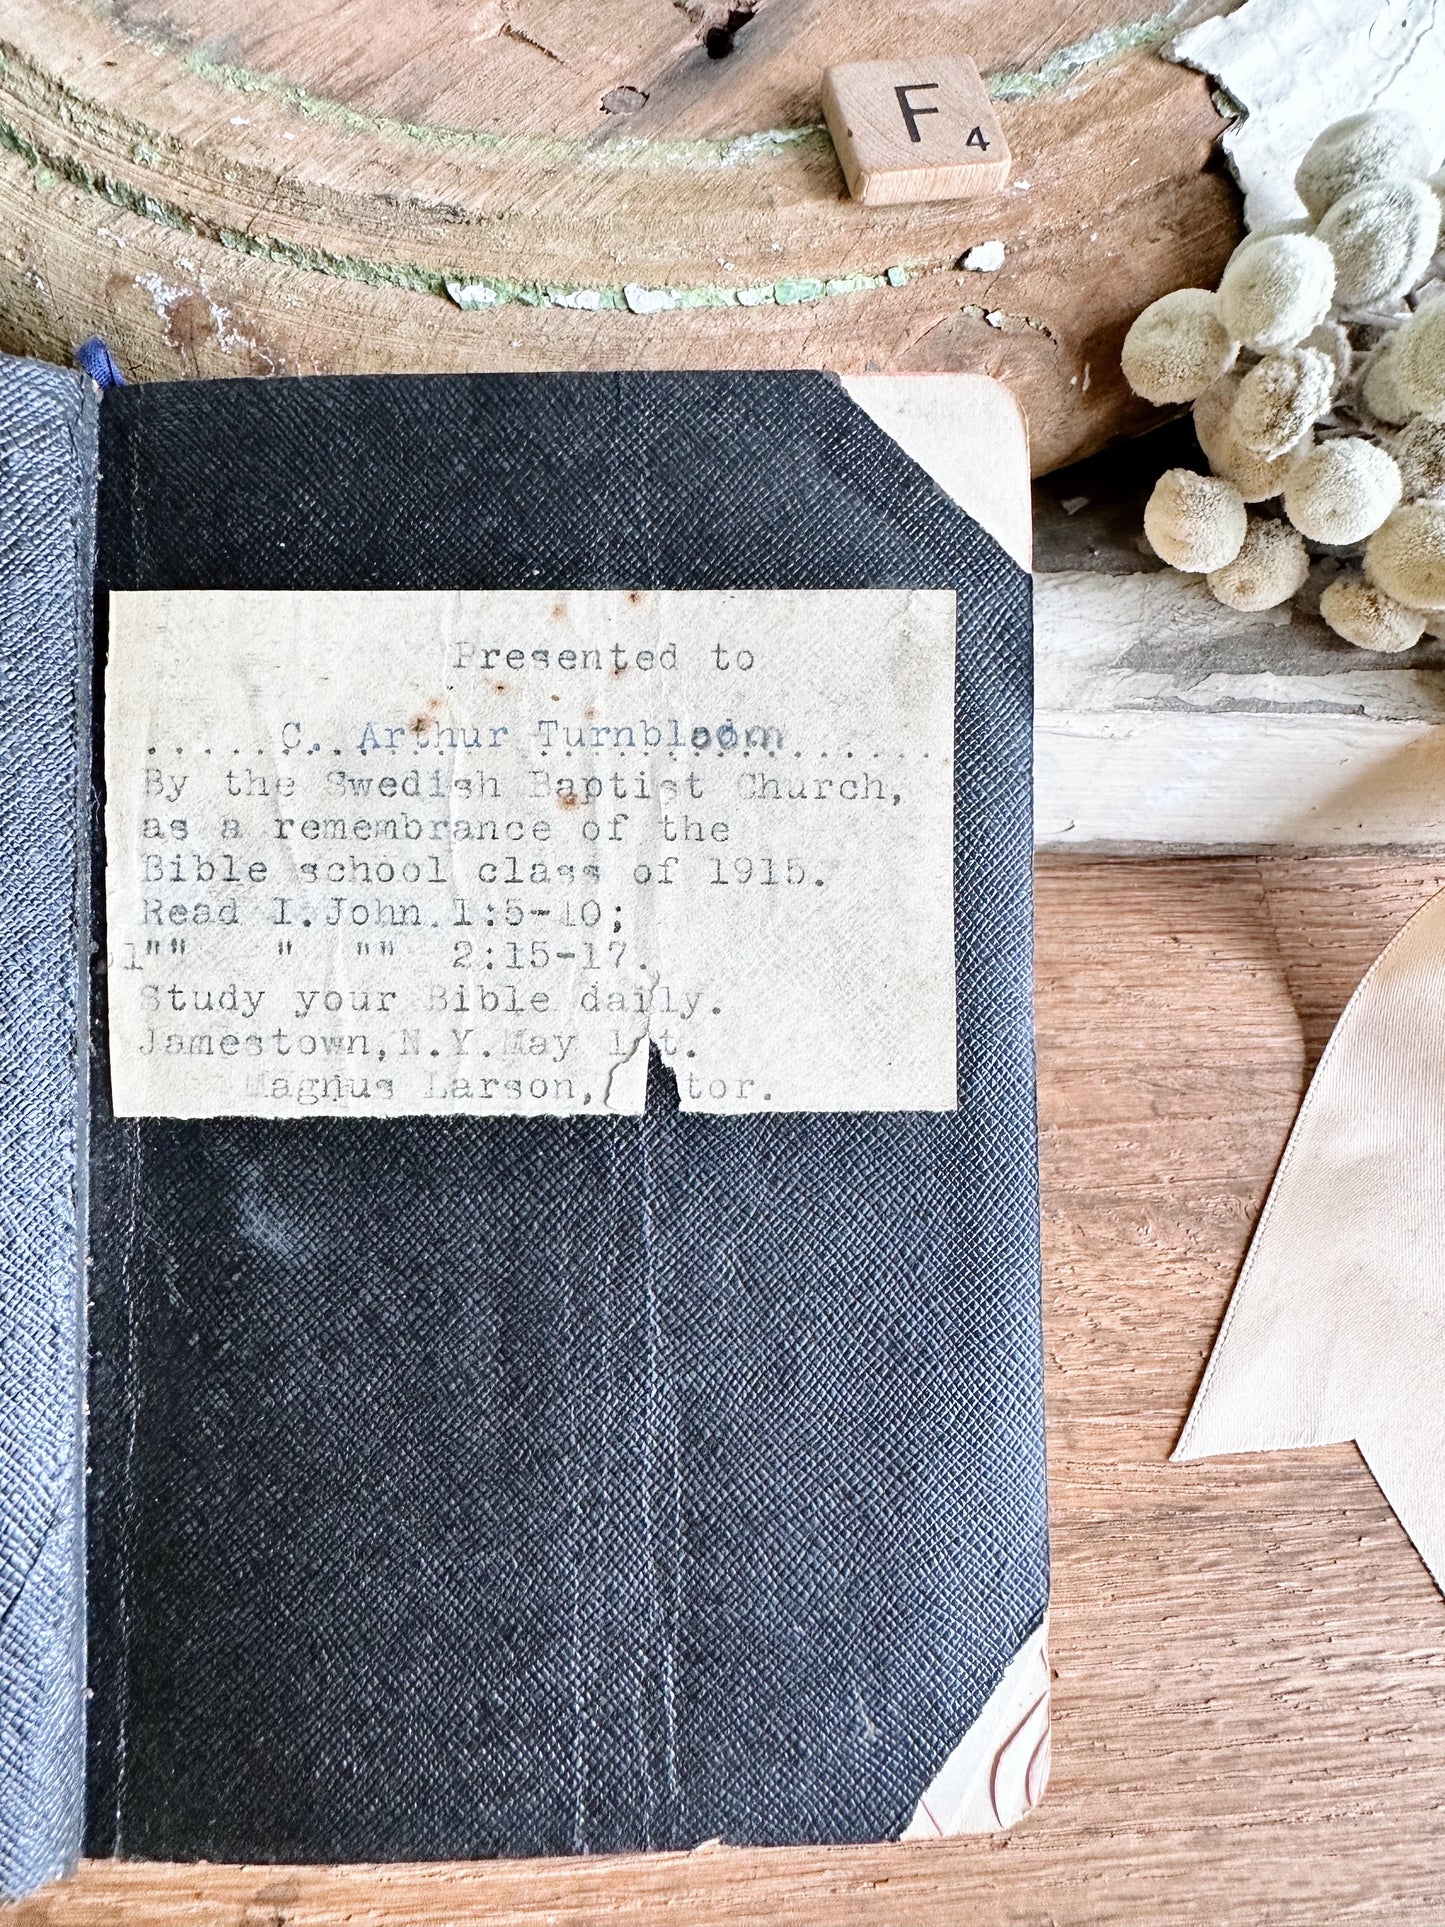 F 4
Presented to
.....C. Arthur Turnbloom......
By the Swedish Baptist Church,
as a remembrance of the
Bible school class of 1915.
Read I.John.1:5-10;
"" " "" 2:15-17.
Study your Bible daily.
Jamestown,N.Y.May
Magnus Larson,